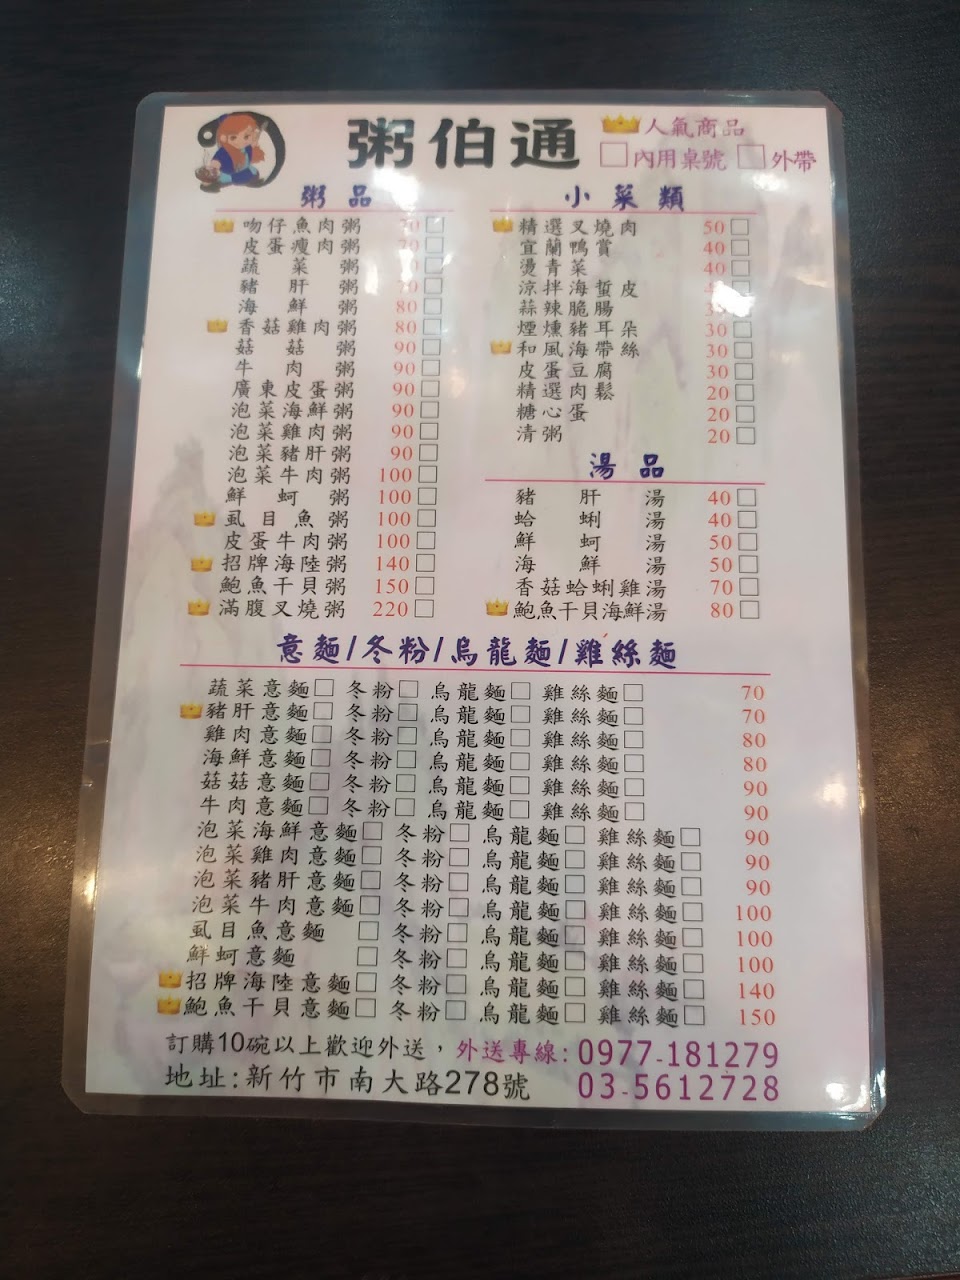 粥伯通
人氣商品
□內用桌號 □外帶
粥品
吻仔魚肉粥 70 □
皮蛋瘦肉粥 70 □
蔬菜粥 □
豬肝粥 70 □
海鮮粥 80 □
香菇雞肉粥 80 □
菇菇粥 90 □
牛肉粥 90 □
廣東皮蛋粥 90 □
泡菜海鮮粥 90 □
泡菜雞肉粥 90 □
泡菜豬肝粥 90 □
泡菜牛肉粥 100 □
鮮蚵粥 100 □
虱目魚粥 100 □
皮蛋牛肉粥 100 □
招牌海陸粥 140 □
鮑魚干貝粥 150 □
滿腹叉燒粥 220 □
小菜類
精選叉燒肉 50 □
宜蘭鴨賞 40 □
燙青菜 40 □
涼拌海蜇皮 □
蒜辣脆腸 □
煙燻豬耳朵 30 □
和風海帶絲 30 □
皮蛋豆腐 30 □
精選肉鬆 20 □
糖心蛋 20 □
清粥 20 □
湯品
豬肝湯 40 □
蛤蜊湯 40 □
鮮蚵湯 50 □
海鮮湯 50 □
香菇蛤蜊雞湯 70 □
鮑魚干貝海鮮湯 80 □
意麵/冬粉/烏龍麵/雞絲麵
蔬菜意麵□ 冬粉□ 烏龍麵□ 雞絲麵□ 70
豬肝意麵□ 冬粉□ 烏龍麵□ 雞絲麵□ 70
雞肉意麵□ 冬粉□ 烏龍麵□ 雞絲麵□ 80
海鮮意麵□ 冬粉□ 烏龍麵□ 雞絲麵□ 80
菇菇意麵□ 冬粉□ 烏龍麵□ 雞絲麵□ 90
牛肉意麵□ 冬粉□ 烏龍麵□ 雞絲麵□ 90
泡菜海鮮意麵□ 冬粉□ 烏龍麵□ 雞絲麵□ 90
泡菜雞肉意麵□ 冬粉□ 烏龍麵□ 雞絲麵□ 90
泡菜豬肝意麵□ 冬粉□ 烏龍麵□ 雞絲麵□ 90
泡菜牛肉意麵□ 冬粉□ 烏龍麵□ 雞絲麵□ 100
虱目魚意麵 □ 冬粉□ 烏龍麵□ 雞絲麵□ 100
鮮蚵意麵 □ 冬粉□ 烏龍麵□ 雞絲麵□ 100
招牌海陸意麵□ 冬粉□ 烏龍麵□ 雞絲麵□ 140
鮑魚干貝意麵□ 冬粉□ 烏龍麵□ 雞絲麵□ 150
訂購10碗以上歡迎外送，外送專線:0977-181279
地址:新竹市南大路278號 03-5612728